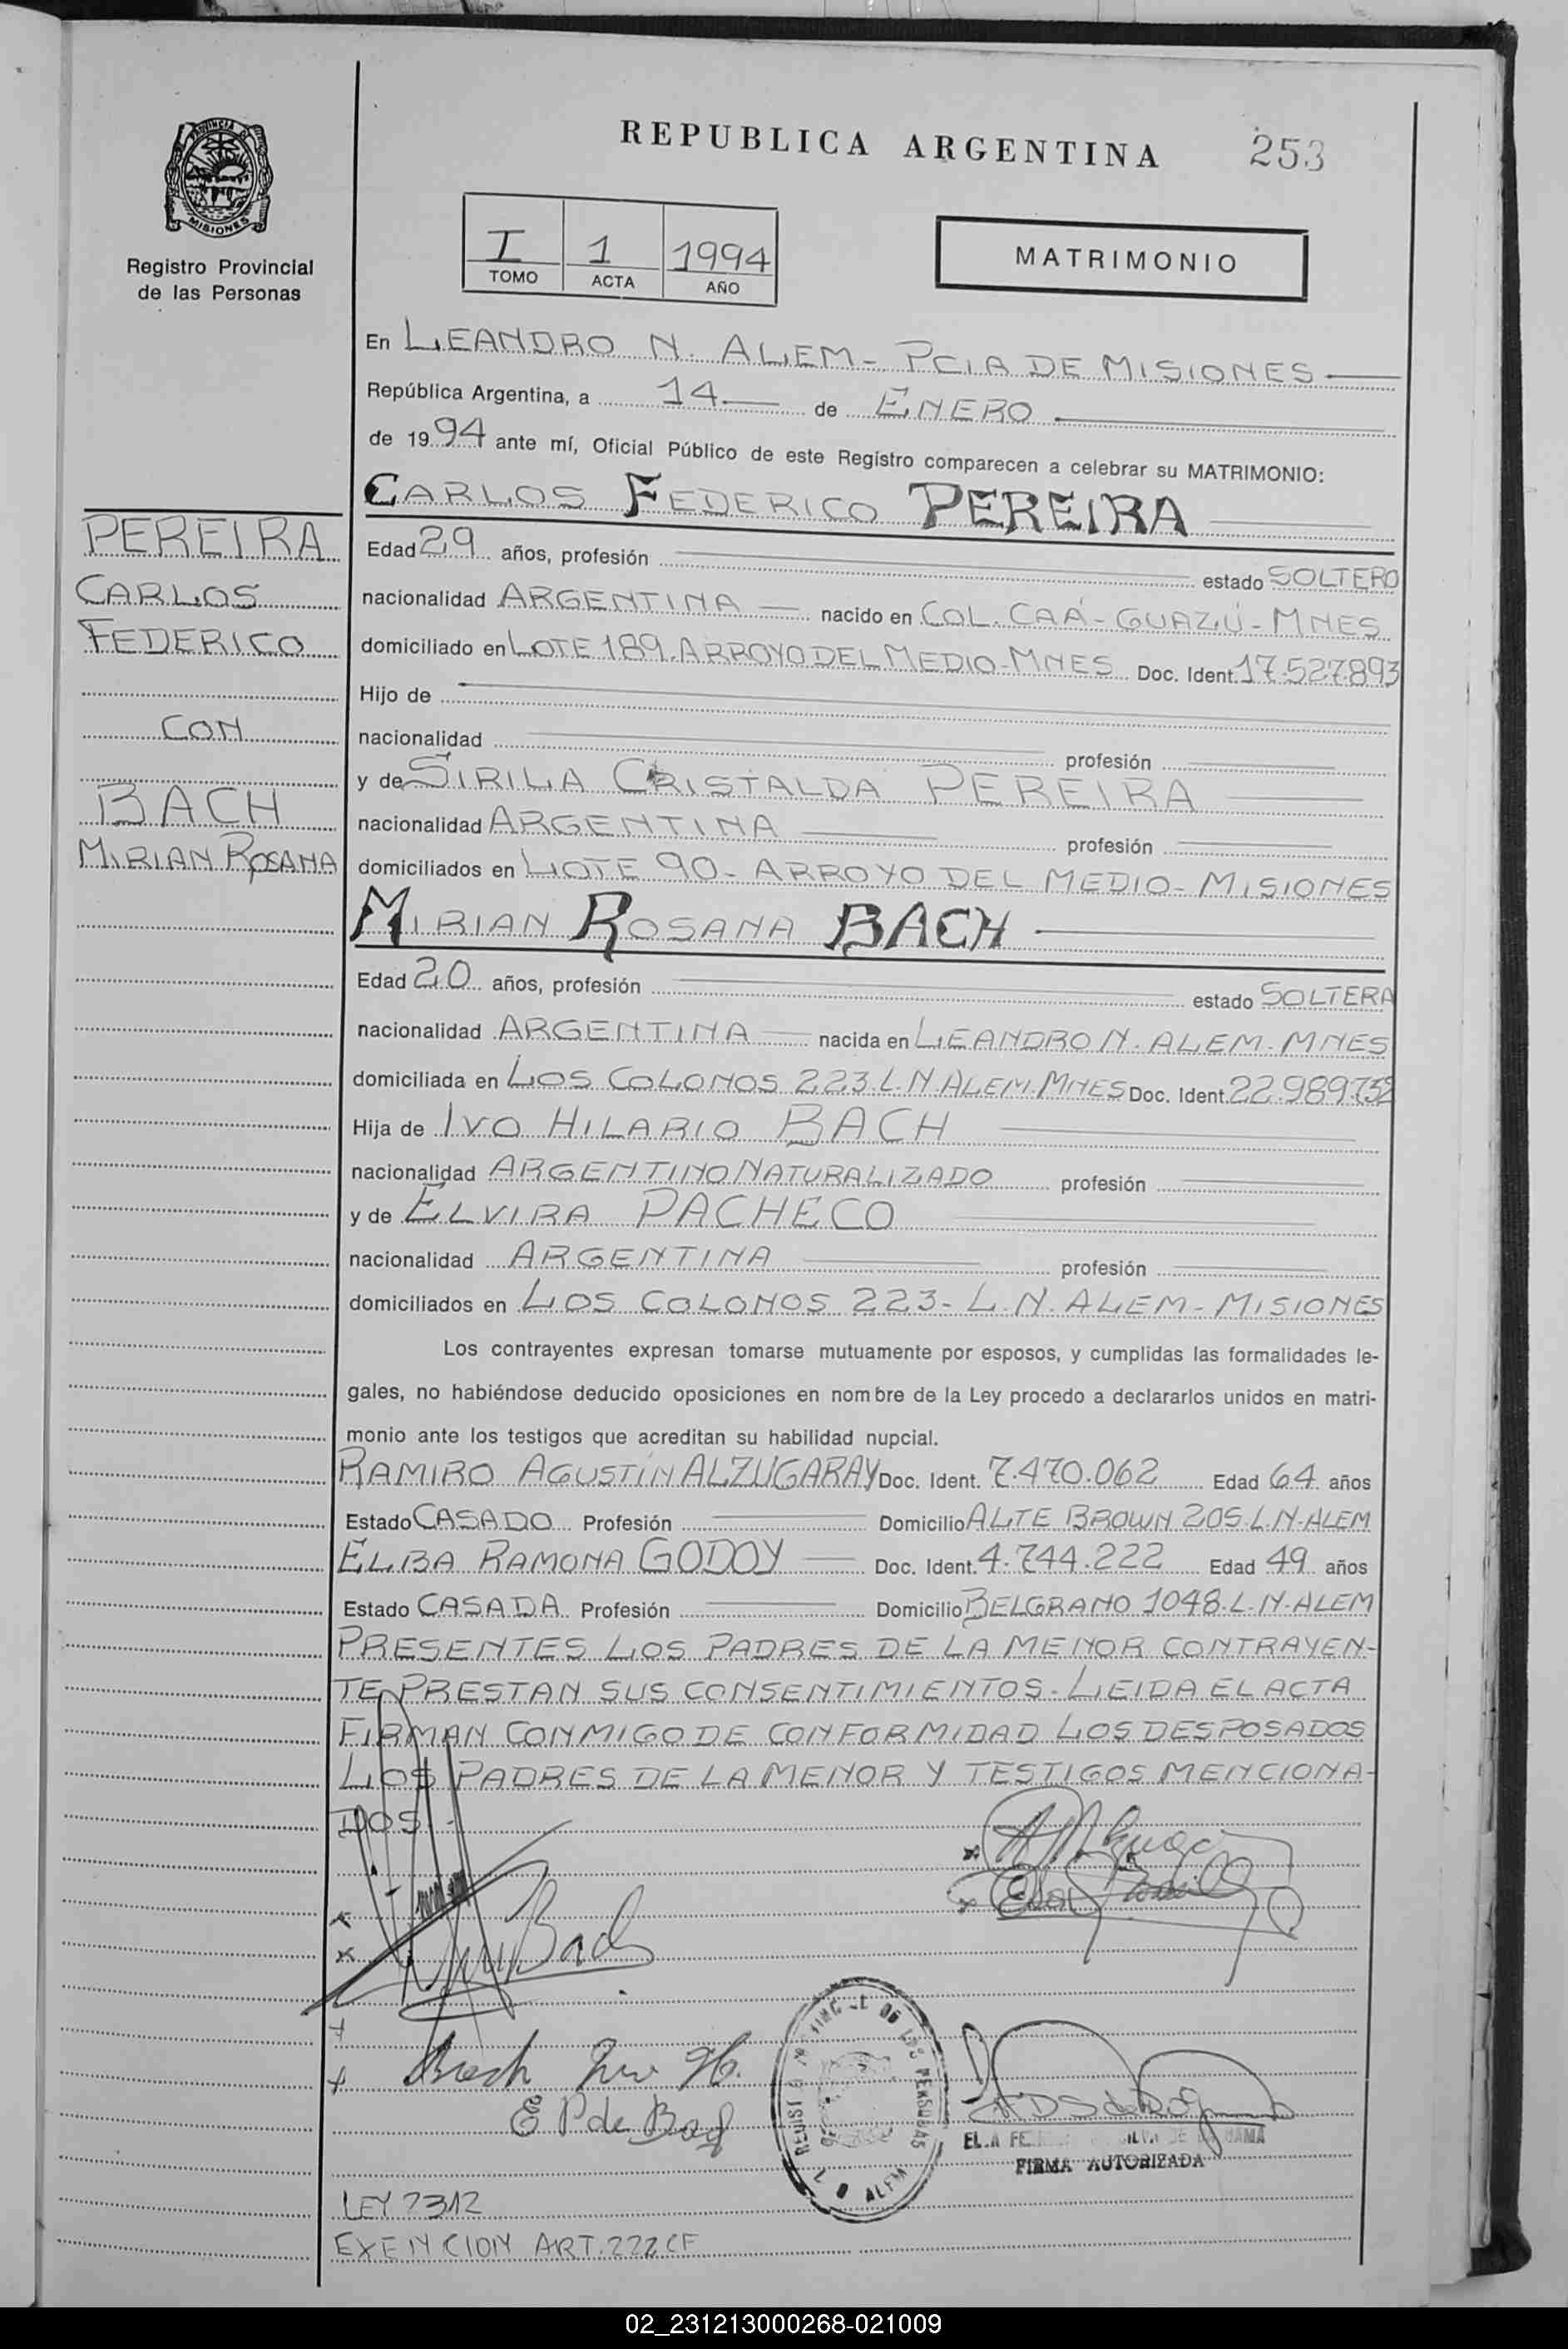 REPUBLICA ARGENTINA
253
PROVINCIA D
MISIONES
Registro Provincial
de las Personas
I 1 1994
TOMO ACTA AÑO
MATRIMONIO
En LEANDRO N. ALEM - PCIA DE MISIONES
República Argentina, a 14 de ENERO
de 1994 ante mí, Oficial Público de este Registro comparecen a celebrar su MATRIMONIO:
CARLOS FEDERICO PEREIRA
PEREIRA
CARLOS
FEDERICO
CON
BACH
MIRIAN ROSANA
Edad 29 años, profesión estado SOLTERO
nacionalidad ARGENTINA nacido en COL. CAÁ-GUAZÚ-MNES
domiciliado en LOTE 189 ARROYO DEL MEDIO-MNES Doc. Ident. 17.527.893
Hijo de
nacionalidad profesión
y de SIRILA CRISTALDA PEREIRA
nacionalidad ARGENTINA profesión
domiciliados en LOTE 90- ARROYO DEL MEDIO- MISIONES
MIRIAN ROSANA BACH
Edad 20 años, profesión estado SOLTERA
nacionalidad ARGENTINA nacida en LEANDRO N. ALEM-MNES
domiciliada en LOS COLONOS 223-L.N.ALEM-MNES Doc. Ident. 22.989.732
Hija de IVO HILARIO BACH
nacionalidad ARGENTINO NATURALIZADO profesión
y de ELVIRA PACHECO
nacionalidad ARGENTINA profesión
domiciliados en LOS COLONOS 223- L.N. ALEM- MISIONES
Los contrayentes expresan tomarse mutuamente por esposos, y cumplidas las formalidades le-
gales, no habiéndose deducido oposiciones en nombre de la Ley procedo a declararlos unidos en matri-
monio ante los testigos que acreditan su habilidad nupcial.
RAMIRO AGUSTÍN ALZUGARAY Doc. Ident. 7.470.062 Edad 64 años
Estado CASADO Profesión Domicilio ALTE BROWN 205-L.N-ALEM
ELBA RAMONA GODOY Doc. Ident. 4.744.222 Edad 49 años
Estado CASADA Profesión Domicilio BELGRANO 1048-L-N-ALEM
PRESENTES LOS PADRES DE LA MENOR CONTRAYEN-
TE PRESTAN SUS CONSENTIMIENTOS. LEIDA EL ACTA
FIRMAN CONMIGO DE CONFORMIDAD LOS DESPOSADOS
LOS PADRES DE LA MENOR Y TESTIGOS MENCIONA-
DOS.-
Bach
Bach Ivo H.
E P de Bach
DE LAS PERSONAS
ALEM
FIRMA AUTORIZADA
LEY 2312
EXENCION ART.222 CF
02_231213000268-021009